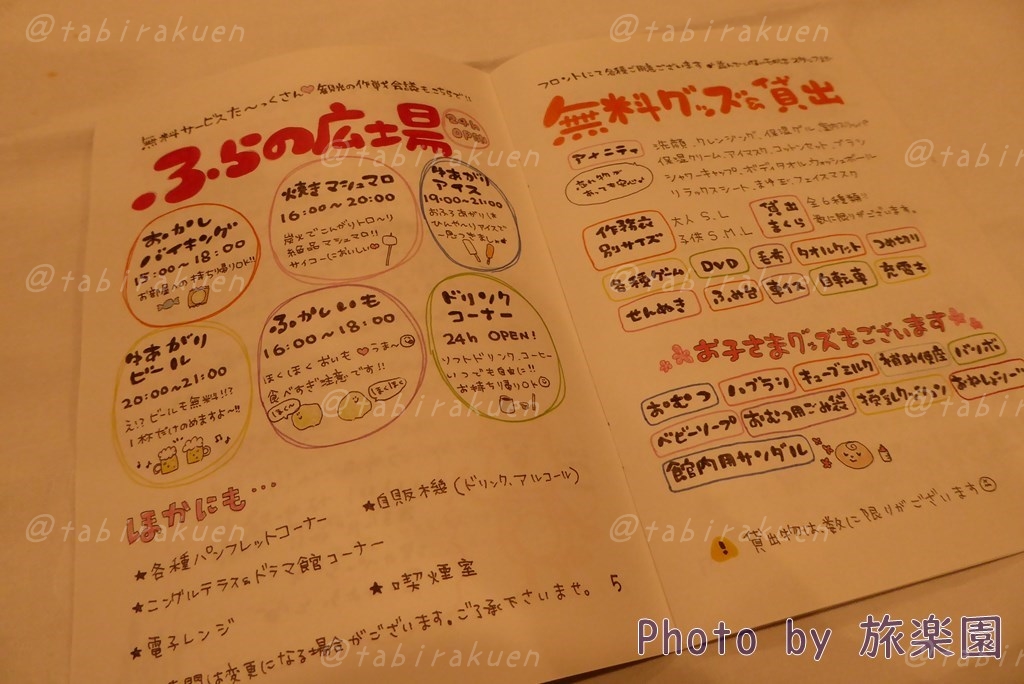 無料サービスた〜っくさん♡観光の作戦会議もこちらで!!
ふらの広場
24h OPEN
おかし
バイキング
15:00〜18:00
お部屋への持ち帰りOK!!
焼きマシュマロ
16:00〜20:00
炭火でこんがりトロ〜リ
絶品マシュマロ!!
サイコーにおいしい♡
ゆあがり
アイス
19:00〜21:00
おふろあがりは
ひんやり アイスで
ゆあがり
ビール
20:00〜21:00
え!?ビールも無料!!?
1杯だけのめますよ〜!!
ふかしいも
16:00〜18:00
ほくほく おいも♡うま〜
食べすぎ注意です!!
ほく〜
ほくほく
ドリンク
コーナー
24h OPEN!
ソフトドリンク、コーヒー
いつでも自由に!!
お持ち帰りOK
ほかにも…
★自販機(ドリンク、アルコール)
★各種パンフレットコーナー
★ニングルテラス&ドラマ館コーナー
★喫煙室
★電子レンジ
時間は変更になる場合がございます。ご了承下さいませ。
5
フロントにて各種ご用意ございます
無料グッズ&貸出
アメニティ
洗顔、クレンジング、保湿ゲル
保湿クリーム、アイマスク、コットンセット、ブラシ
シャワーキャップ、ボディタオル、ウォッシュボール
リラックスシート、フェイスマスク
作務衣
別サイズ
大人 S.L
子供 S.M.L
貸出
まくら
全6種類!!
数に限りがございます。
各種ゲーム
DVD
毛布
タオルケット
つめ切り
せんぬき
ふみ台
車イス
自転車
充電キ
お子さまグッズもございます
おむつ
ハブラシ
キューブミルク
補助便座
バンボ
ベビーソープ
おむつ用ごみ袋
授乳クッション
おねしょシーツ
館内用サンダル
! 貸出物は数に限りがございます
@tabirakuen
Photo by 旅楽園